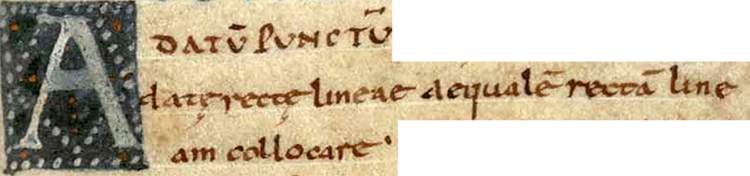 A DATŪ PUNCTŪ
datę rectę lineae aequalē rectā line
am collocare